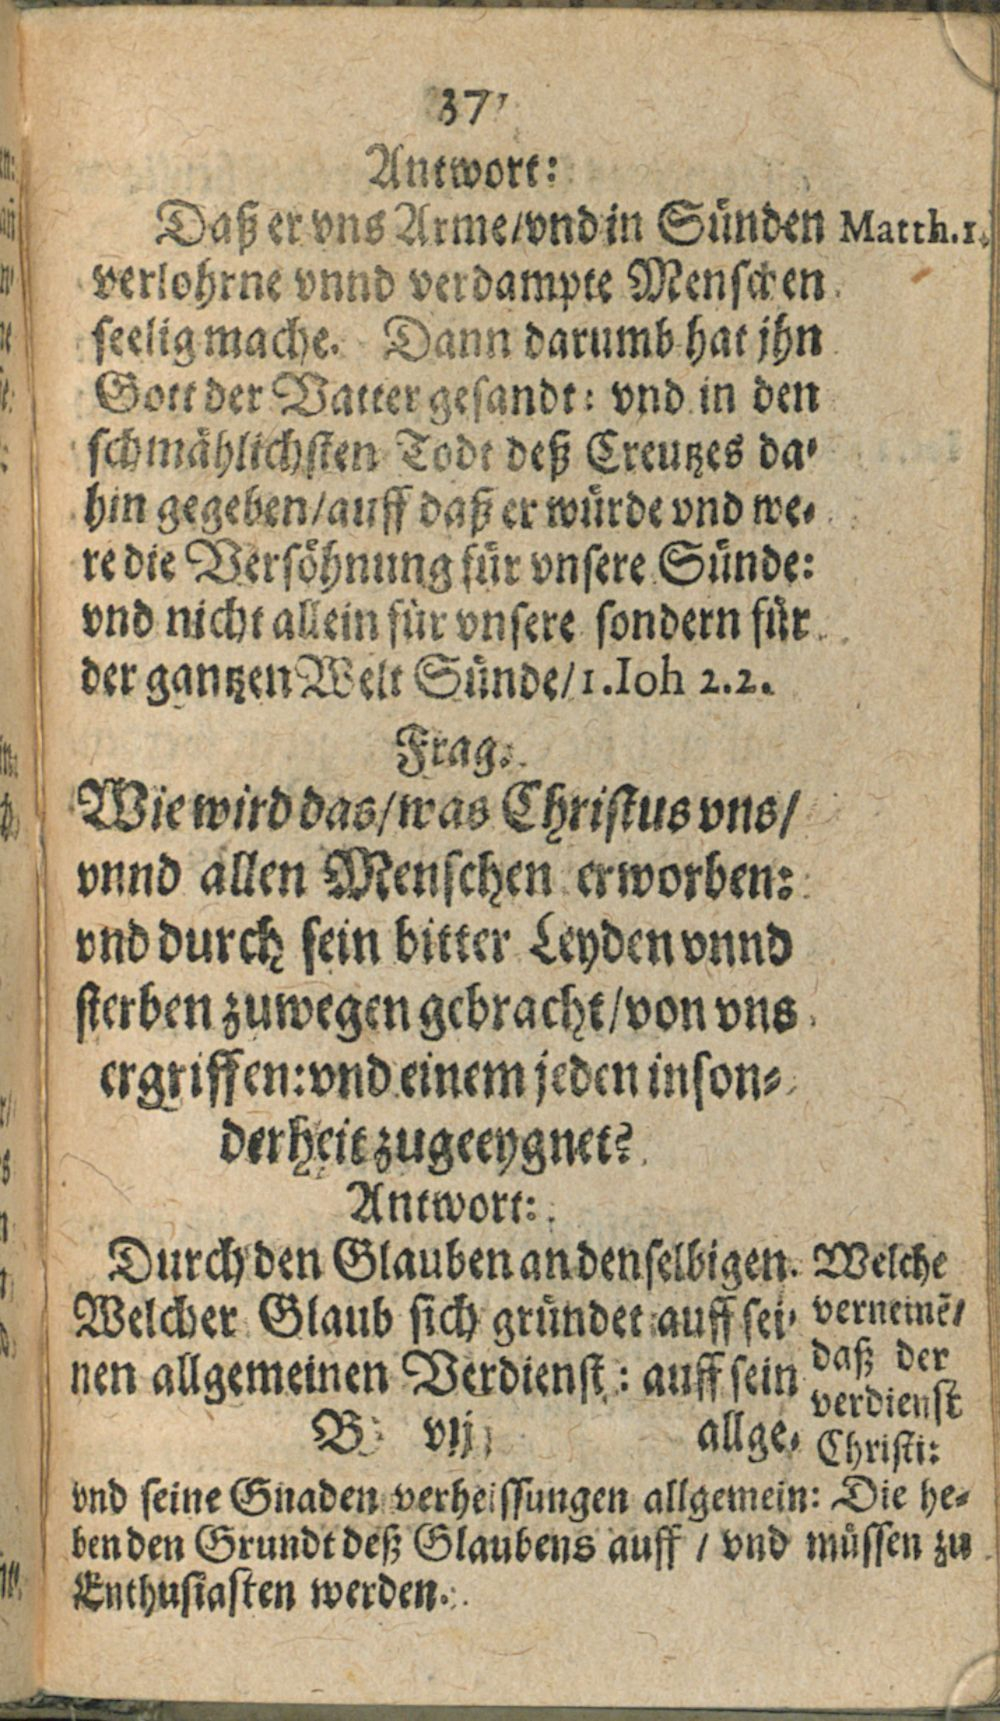 37
Antwort:
Daß er vns Arme/vnd in Sünden
verlohrne vnnd verdampte Menschen
seelig mache. Dann darumb hat jhn
Gott der Vatter gesandt: vnd in den
schmählichsten Todt deß Creutzes da-
hin gegeben/auff daß er würde vnd we-
re die Versöhnung für vnsere Sünde:
vnd nicht allein für vnsere sondern für
der gantzen Welt Sünde/1.Ioh 2.2.
Matth.1.
Frag.
Wie wird das/was Christus vns/
vnnd allen Menschen erworben:
vnd durch sein bitter Leyden vnnd
sterben zuwegen gebracht/von vns
ergriffen:vnd einem jeden inson-
derheit zugeeygnet?
Antwort:
Durch den Glauben an denselbigen.
Welcher Glaub sich gründet auff sei-
nen allgemeinen Verdienst: auff sein
B vij allge-
Welche
verneinē/
daß der
verdienst
Christi:
vnd seine Gnaden verheissungen allgemein: Die he-
ben den Grundt deß Glaubens auff / vnd müssen zu
Enthusiasten werden.